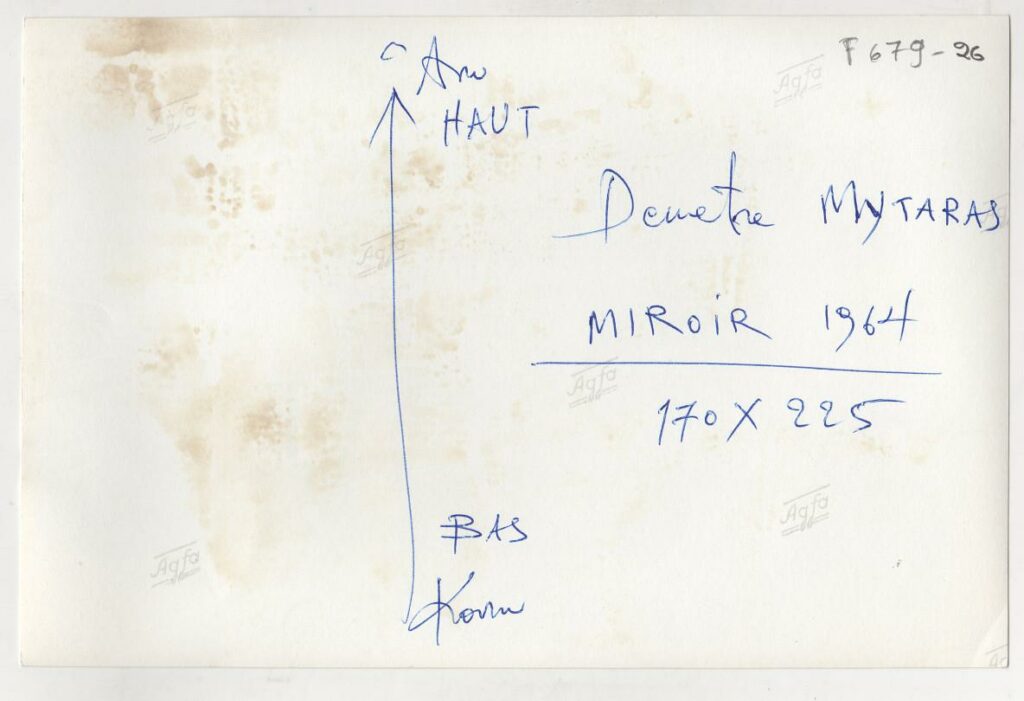 F 679-26
Ανω
HAUT
Demetre MYTARAS
MIROIR 1964
170 X 225
BAS
Κατω
Agfa
Agfa
Agfa
Agfa
Agfa
Agfa